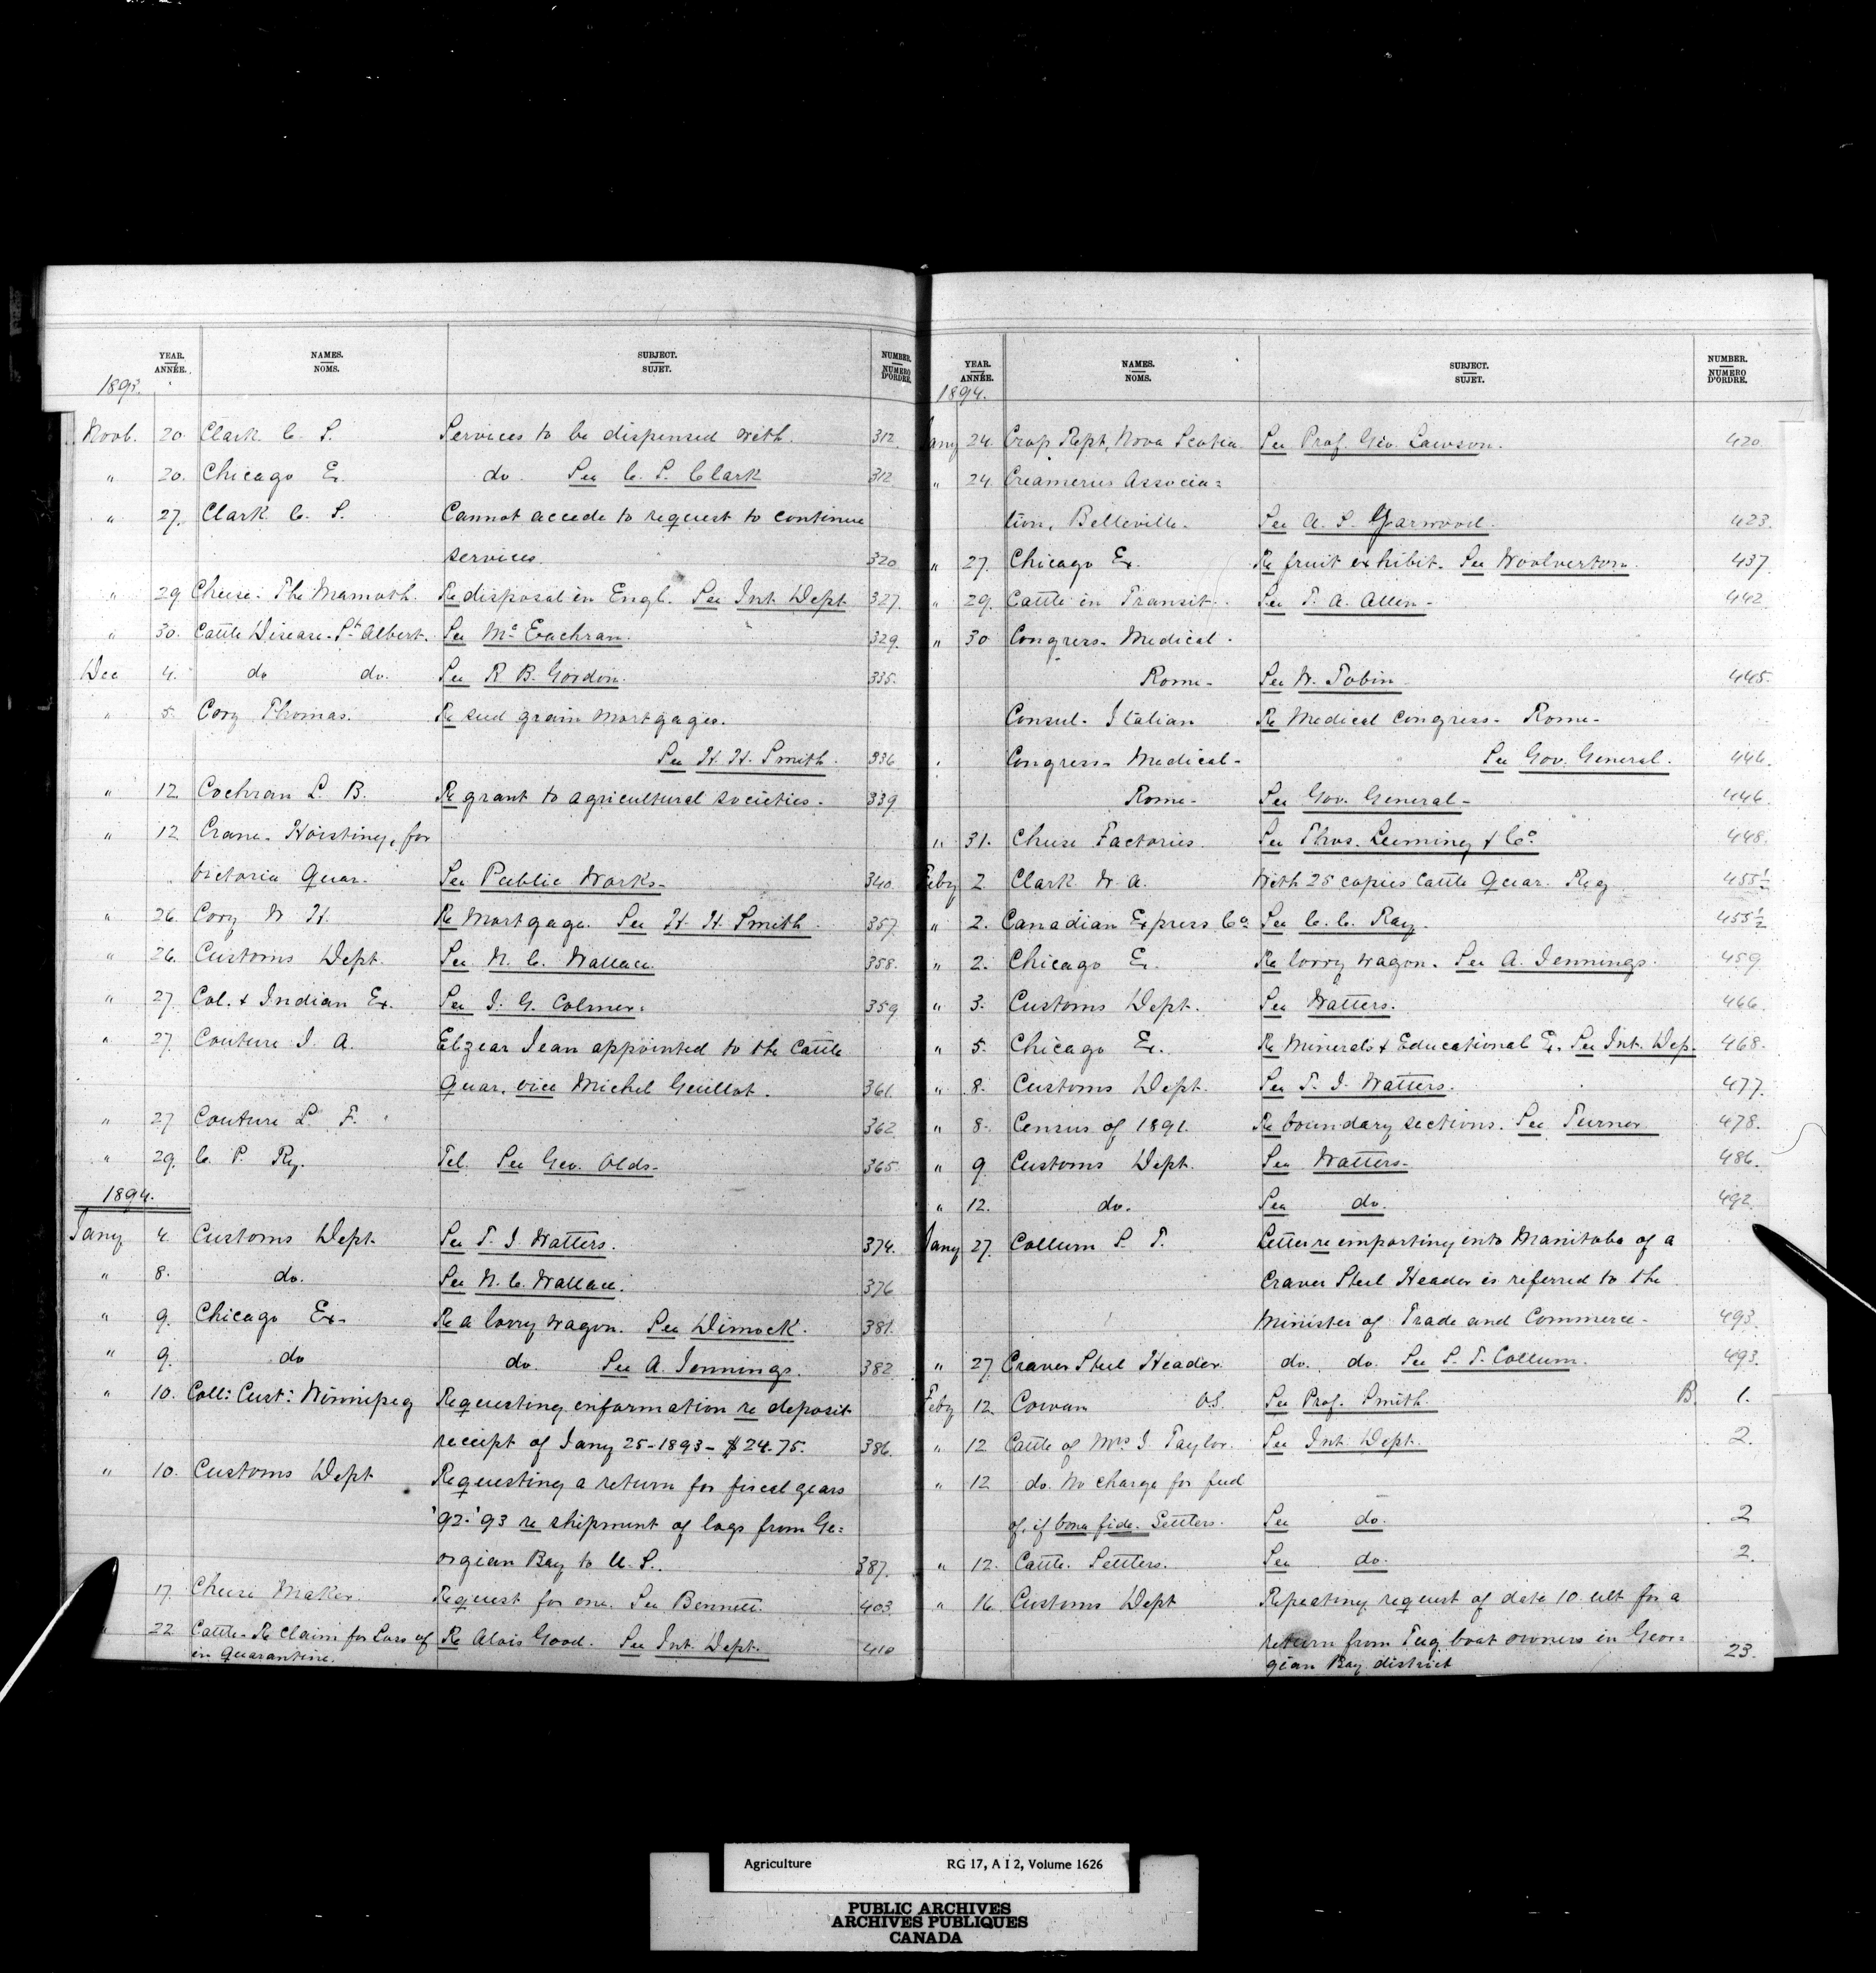 YEAR. ANNÉE. NAMES. NOMS. SUBJECT. SUJET. NUMBER. NUMERO D'ORDRE.
1893.
Novb. 20. Clark C. S. Services to be dispensed with. 312.
" 20. Chicago Ex. do. See C. S. Clark 312
" 27. Clark C. S. Cannot accede to request to continue
services. 320
" 29 Cheese. The Mamoth. Re disposal in Engl. See Int. Dept. 327.
" 30. Cattle Disease. St Albert. See Mc Eachran. 329.
Dec 4. do do. See R. B. Gordon. 335.
" 5. Cory Thomas. Re seed grain mortgages.
See H. H. Smith. 336
" 12. Cochran L. B. Re grant to agricultural societies. 339
" 12 Crane. Hoisting, for
Victoria Quar. See Public Works. 340.
" 26. Cory W. H. Re Mortgage. See H. H. Smith. 357.
" 26. Customs Dept. See N. C. Wallace. 358.
" 27. Col. & Indian Ex. See J. G. Colmer. 359
" 27. Couture J. A. Elzear Jean appointed to the Cattle
Quar. vice Michel Guillot. 361.
" 27 Couture L. F. 362
" 29. C. P. Ry. Tel. See Geo. Olds. 365.
1894.
Jany 4. Customs Dept. See T. J. Watters. 374.
" 8. do. See N. C. Wallace. 376
" 9. Chicago Ex. Re a lorry wagon. See Dimock. 381.
" 9. do do. See A. Jennings. 382
" 10. Coll: Cust: Winnipeg Requesting information re deposit
receipt of Jany 25-1893- $24.75. 386.
" 10. Customs Dept Requesting a return for fiscal years
'92-'93 re shipment of logs from Ge=
orgian Bay to U. S. 387.
17. Cheese Maker. Request for one. See Bennett. 403.
22 Cattle. Re Claim for Loss of Re Alois Good. See Int. Dept. 410
in Quarantine.
YEAR. ANNÉE. NAMES. NOMS. SUBJECT. SUJET. NUMBER. NUMERO D'ORDRE.
1894.
Jany 24. Crop Rept, Nova Scotia See Prof. Geo. Lawson. 420.
" 24. Creameries Associa=
tion, Belleville. See A. S. Yarwood. 423.
" 27. Chicago Ex. Re fruit exhibit. See Woolverton. 437.
" 29. Cattle in Transit. See T. A. Allen. 442
" 30 Congress. Medical.
Rome. See W. Tobin 445.
Consul. Italian Re Medical Congress. Rome.
Congress. Medical. See Gov. General. 446.
Rome. See Gov. General. 446.
" 31. Cheese Factories. See Thos. Leeming & Co. 448.
Feby 2 Clark W. A. With 25 copies Cattle Quar. Reg 455½
" 2. Canadian Express Co. See C. C. Ray. 455½
" 2. Chicago Ex. Re lorry wagon. See A. Jennings. 459
" 3. Customs Dept. See Watters. 466.
" 5. Chicago Ex. Re Minerals & Educational Ex. See Int. Dep. 468.
" 8. Customs Dept. See T. J. Watters. 477.
" 8. Census of 1891. Re boundary sections. See Turner. 478.
" 9. Customs Dept. See Watters. 486.
" 12. do. See do. 492.
Jany 27. Collum S. T. Letter re importing into Manitoba of a
Craver Steel Header is referred to the
Minister of Trade and Commerce. 493.
" 27 Craver Steel Header do. do. See S. T. Collum. 493.
Feby 12. Cowan O.S. See Prof. Smith. B. 1.
" 12 Cattle of Mrs J. Taylor. See Int. Dept. 2.
" 12 do. No charge for feed
of, if bona fide. Settlers. See do. 2
" 12. Cattle. Settlers. See do. 2.
" 16 Customs Dept Repeating request of date 10. ult for a
return from Tug boat owners in Geor=
gian Bay district 23.
Agriculture RG 17, A I 2, Volume 1626
PUBLIC ARCHIVES
ARCHIVES PUBLIQUES
CANADA